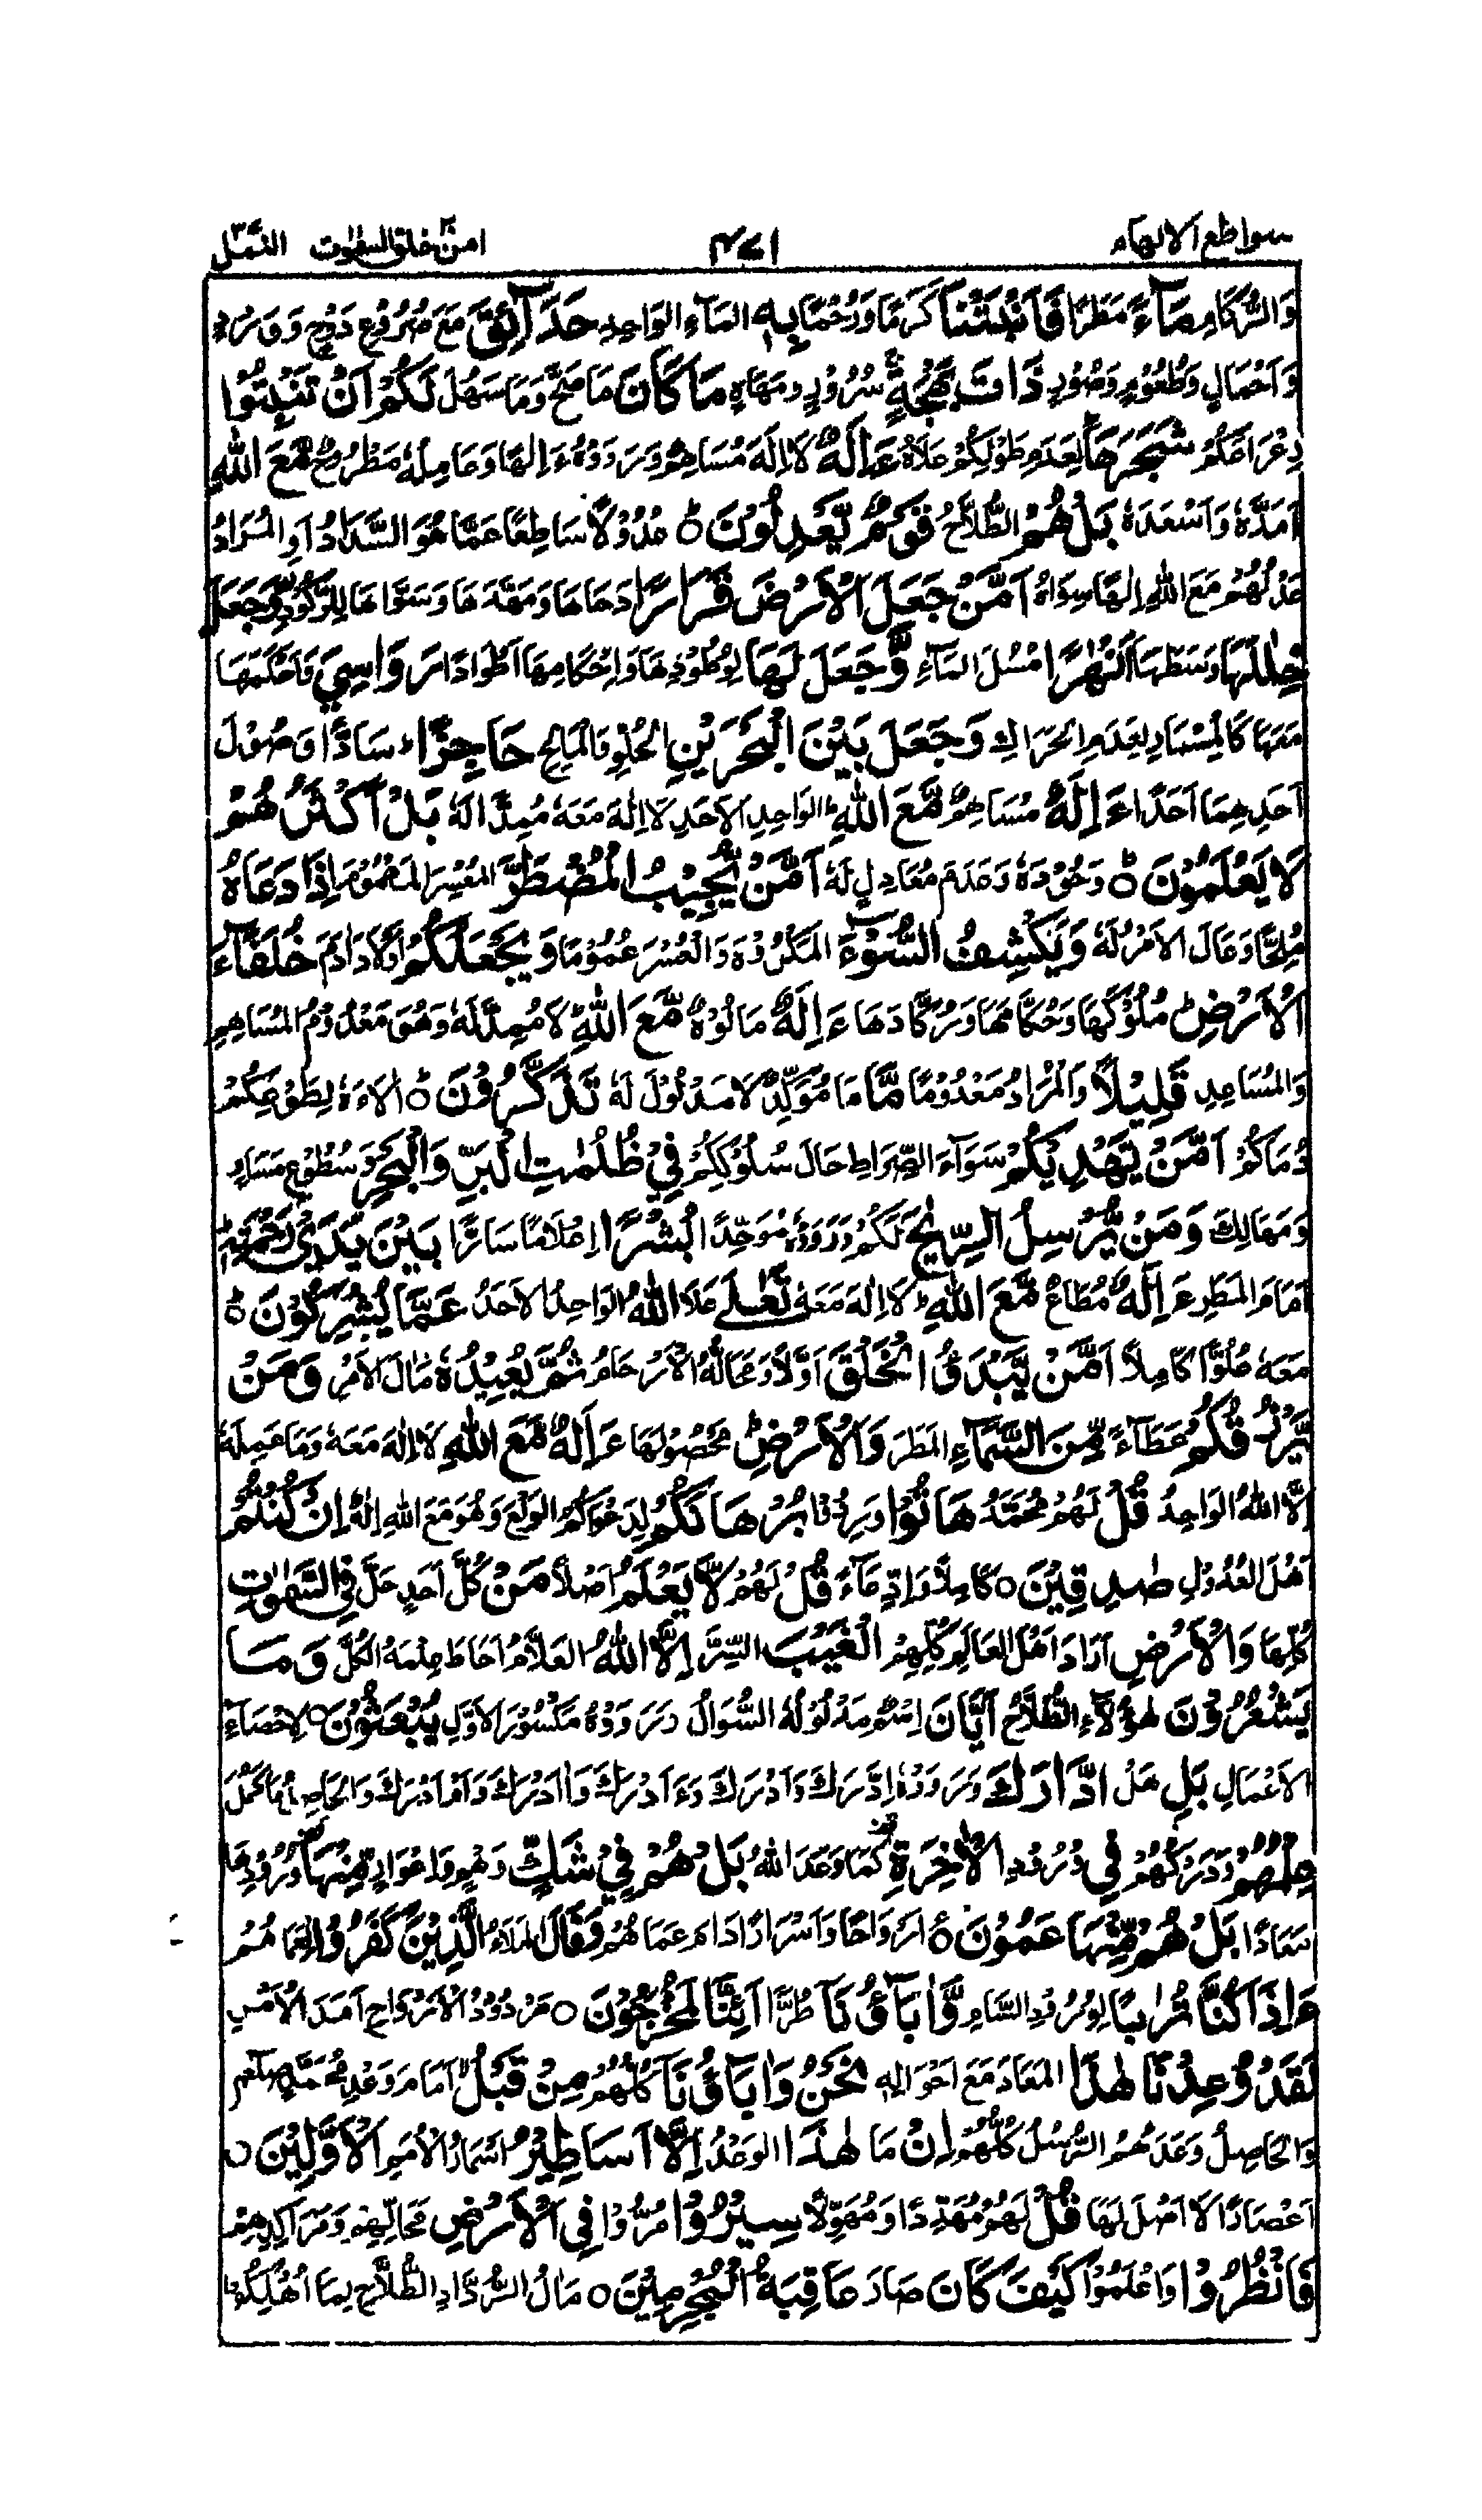 سواطع الالهام ٤٧١ امن خلق السموات النمل
مَآءً مَطَرًا فَاَنْۢبَتْنَا كَرَمًا وَرُحْمًا بِهٖ المَآءِ الوَاحِدِ حَدَآئِقَ مَعَ دَوْحٍ
وَاَحْمَالٍ وَطُعُوْمٍ وَصُوَرٍ ذَاتَ بَهْجَةٍ سُرُوْرٍ مَا كَانَ مَا صَحَّ وَمَا سَهُلَ لَكُمْ اَنْ تُنْۢبِتُوْا
شَجَرَهَا لِعَدَمِ طَوْلِكُمْ عَلَاهُ ءَاِلٰهٌ لَا اِلٰهَ مُسَاهِمٌ وَرَوَوْهُ ءَاِلٰهًا وَعَامِلُهُ مَطْرُوْحٌ مَّعَ اللّٰهِ
اَمَدَّهُ وَاَسْعَدَهُ بَلْ هُمْ الطُّلَّاحُ قَوْمٌ يَّعْدِلُوْنَ عُدُوْلًا سَاطِعًا عَمَّا هُوَ السَّدَادُ اَوِ المُرَادُ
عَدْلُهُمْ مَعَ اللّٰهِ اِلٰهًا سِوَاهُ اَمَّنْ جَعَلَ الْاَرْضَ قَرَارًا دَحَاهَا وَمَهَّدَهَا وَسَوَّاهَا لِلرُّكُوْدِ وَّجَعَلَ
خِلٰلَهَا وَسَطَهَا اَنْهٰرًا مُسُلَ المَآءِ وَّجَعَلَ لَهَا لِوُطُوْدِهَا وَاِحْكَامِهَا اَطْوَادًا رَوَاسِيَ
لِعَدَمِ الحَرَاكِ وَجَعَلَ بَيْنَ الْبَحْرَيْنِ الحُلْوِ وَالمَالِحِ حَاجِزًا سَادًّا وَصُوْلَ
اَحَدِهِمَا اَحَدًا ءَاِلٰهٌ مُسَاهِمٌ مَّعَ اللّٰهِ الوَاحِدِ الاَحَدِ لَا اِلٰهَ مَعَهُ مُمِدًّا لَهُ بَلْ اَكْثَرُهُمْ
لَا يَعْلَمُوْنَ وَعَدَمَ مُعَادِلٍ لَهُ اَمَّنْ يُّجِيْبُ الْمُضْطَرَّ المُعْسِرَ المَهْمُوْمَ اِذَا دَعَاهُ
مُلِحًّا وَعَالَ الاَمْرُ لَهُ وَيَكْشِفُ السُّوْٓءَ المَكْرُوْهَ وَالعُسْرَ عُمُوْمًا وَيَجْعَلُكُمْ اَوْلَادَ اٰدَمَ خُلَفَآءَ
الْاَرْضِ مُلُوْكَهَا وَحُكَّامَهَا ءَاِلٰهٌ مَالُوْهٌ مَّعَ اللّٰهِ لَا مُمِدَّ لَهُ وَهُوَ مَعْدُوْمُ المُسَاهِمِ
وَالمُسَاعِدِ قَلِيْلًا وَالمُرَادُ مَعْدُوْمًا مَّا مَا مُؤَكِّدٌ لَا مَدْلُوْلَ لَهُ تَذَكَّرُوْنَ اٰلَاءَهُ
اَمَّنْ يَّهْدِيْكُمْ سَوَآءَ الصِّرَاطِ حَالَ سُلُوْكِكُمْ فِيْ ظُلُمٰتِ الْبَرِّ وَالْبَحْرِ
وَمَهَالِكَ وَمَنْ يُّرْسِلُ الرِّيٰحَ لَكُمْ وَرَوَوْهُ مُوَحِّدًا بُشْرًا اِعْلَامًا سَارًّا بَيْنَ يَدَيْ رَحْمَتِهٖ
اَمَامَ المَطَرِ ءَاِلٰهٌ مُطَاعٌ مَّعَ اللّٰهِ لَا اِلٰهَ مَعَهُ تَعٰلَى عَلَا اللّٰهُ الوَاحِدُ الاَحَدُ عَمَّا يُشْرِكُوْنَ
مَعَهُ عُلُوًّا كَامِلًا اَمَّنْ يَّبْدَؤُا الْخَلْقَ اَوَّلًا وَعَالَهُ الاَرْحَامُ ثُمَّ يُعِيْدُهٗ مَاٰلَ الاَمْرِ وَمَنْ
يَّرْزُقُكُمْ عَطَآءً مِّنَ السَّمَآءِ المَطَرَ وَالْاَرْضِ مَحْصُوْلَهَا ءَاِلٰهٌ مَّعَ اللّٰهِ لَا اِلٰهَ مَعَهُ وَمَا عَمِلَهُ
اِلَّا اللّٰهُ الوَاحِدُ قُلْ لَهُمْ مُحَمَّدُ هَاتُوْا بُرْهَانَكُمْ لِدَعْوَاكُمُ الوَلَعَ وَهُوَ مَعَ اللّٰهِ اِلٰهٌ اِنْ كُنْتُمْ
اَهْلَ العُدُوْلِ صٰدِقِيْنَ كَامِلًا وَادِّعَآءً قُلْ لَهُمْ لَّا يَعْلَمُ اَصْلًا مَنْ كُلَّ اَحَدٍ حَلَّ فِي السَّمٰوٰتِ
كُلِّهَا وَالْاَرْضِ اَرَادَ اَهْلَ العَالَمِ كُلِّهِمْ الْغَيْبَ السِّرَّ اِلَّا اللّٰهُ العَلَّامُ اَحَاطَ عِلْمُهُ الكُلَّ وَمَا
يَشْعُرُوْنَ هٰؤُلَآءِ الطُّلَّاحُ اَيَّانَ اِسْمٌ مَدْلُوْلُهُ السُّؤَالُ وَرَوَوْهُ مَكْسُوْرَ الاَوَّلِ يُبْعَثُوْنَ لِاِحْصَآءِ
الاَعْمَالِ بَلِ هَلْ ادّٰرَكَ وَرَوَوْهُ اِدَّرَكَ وَاَدْرَكَ
عِلْمُهُمْ وَدَرَكُهُمْ فِي وُرُوْدِ الْاٰخِرَةِ كَمَا وَعَدَ اللّٰهُ بَلْ هُمْ فِيْ شَكٍّ مِّنْهَا وُرُوْدِهَا
مَعَادًا بَلْ هُمْ مِّنْهَا عَمُوْنَ اَرْوَاحًا وَاَسْرَارًا وَقَالَ المَلَاُ الَّذِيْنَ كَفَرُوْا
ءَاِذَا كُنَّا تُرٰبًا لِوُرُوْدِ السَّامِ وَّاٰبَآؤُنَآ طُرًّا اَئِنَّا لَمُخْرَجُوْنَ مَرْدُوْدُ الاَرْوَاحِ اَمَدَ الاَمْسِ
لَقَدْ وُعِدْنَا هٰذَا المَعَادَ مَعَ اَحْوَالِهِ نَحْنُ وَاٰبَآؤُنَا كُلُّهُمْ مِنْ قَبْلُ اَمَامَ وَعْدِ مُحَمَّدٍ صلعم
وَالحَاصِلُ وَعَدَهُمُ الرُّسُلُ كُلُّهُمْ اِنْ مَا هٰذَا الوَعْدُ اِلَّا اَسَاطِيْرُ اَسْمَارُ الاُمَمِ الْاَوَّلِيْنَ
اَعْصَارًا لَا اَصْلَ لَهَا قُلْ لَهُمْ مُهَدِّدًا وَمُهَوِّلًا سِيْرُوْا مُرُّوْا فِي الْاَرْضِ مَحَالِّهِمْ وَمَرَاكِدِهِمْ
فَانْظُرُوْا وَاعْلَمُوْا كَيْفَ كَانَ صَارَ عَاقِبَةُ الْمُجْرِمِيْنَ مَاٰلُ الرُّدَّادِ الطُّلَّاحِ لِمَا اُهْلِكُوْا